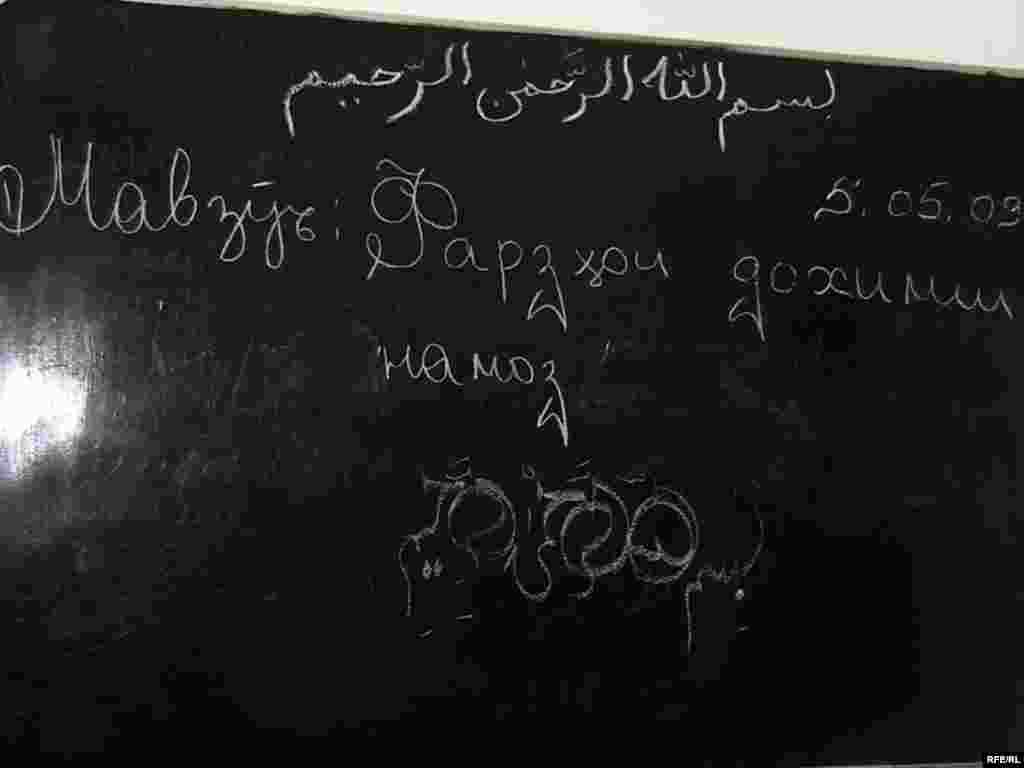 بسم الله الرَّحمٰن الرَّحيم
5.05.09
Мавзӯъ: Фарзҳои дохили
намоз
RFE/RL